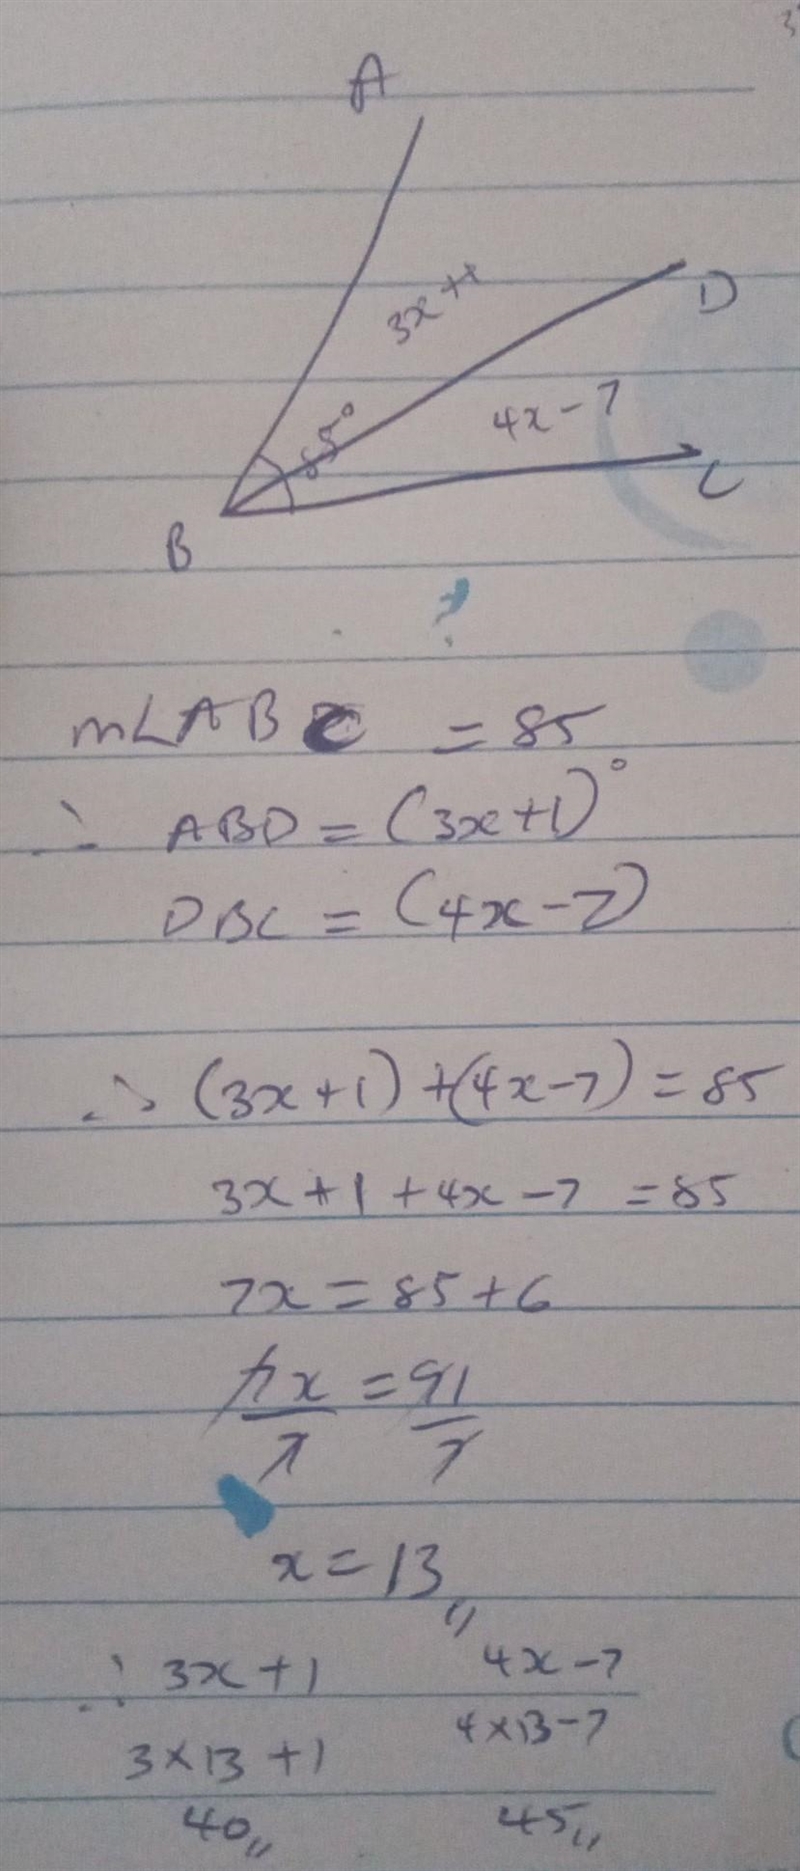 A
3x+1
D
85°
4x-7
C
B
?
m∠ABC = 85
∴ ABD = (3x+1)°
DBC = (4x-7)
∴ (3x+1) + (4x-7) = 85
3x+1+4x-7 = 85
7x = 85+6
7x = 91
7 7
x = 13 "
∴ 3x+1 4x-7
3×13+1 4×13-7
40 " 45 "